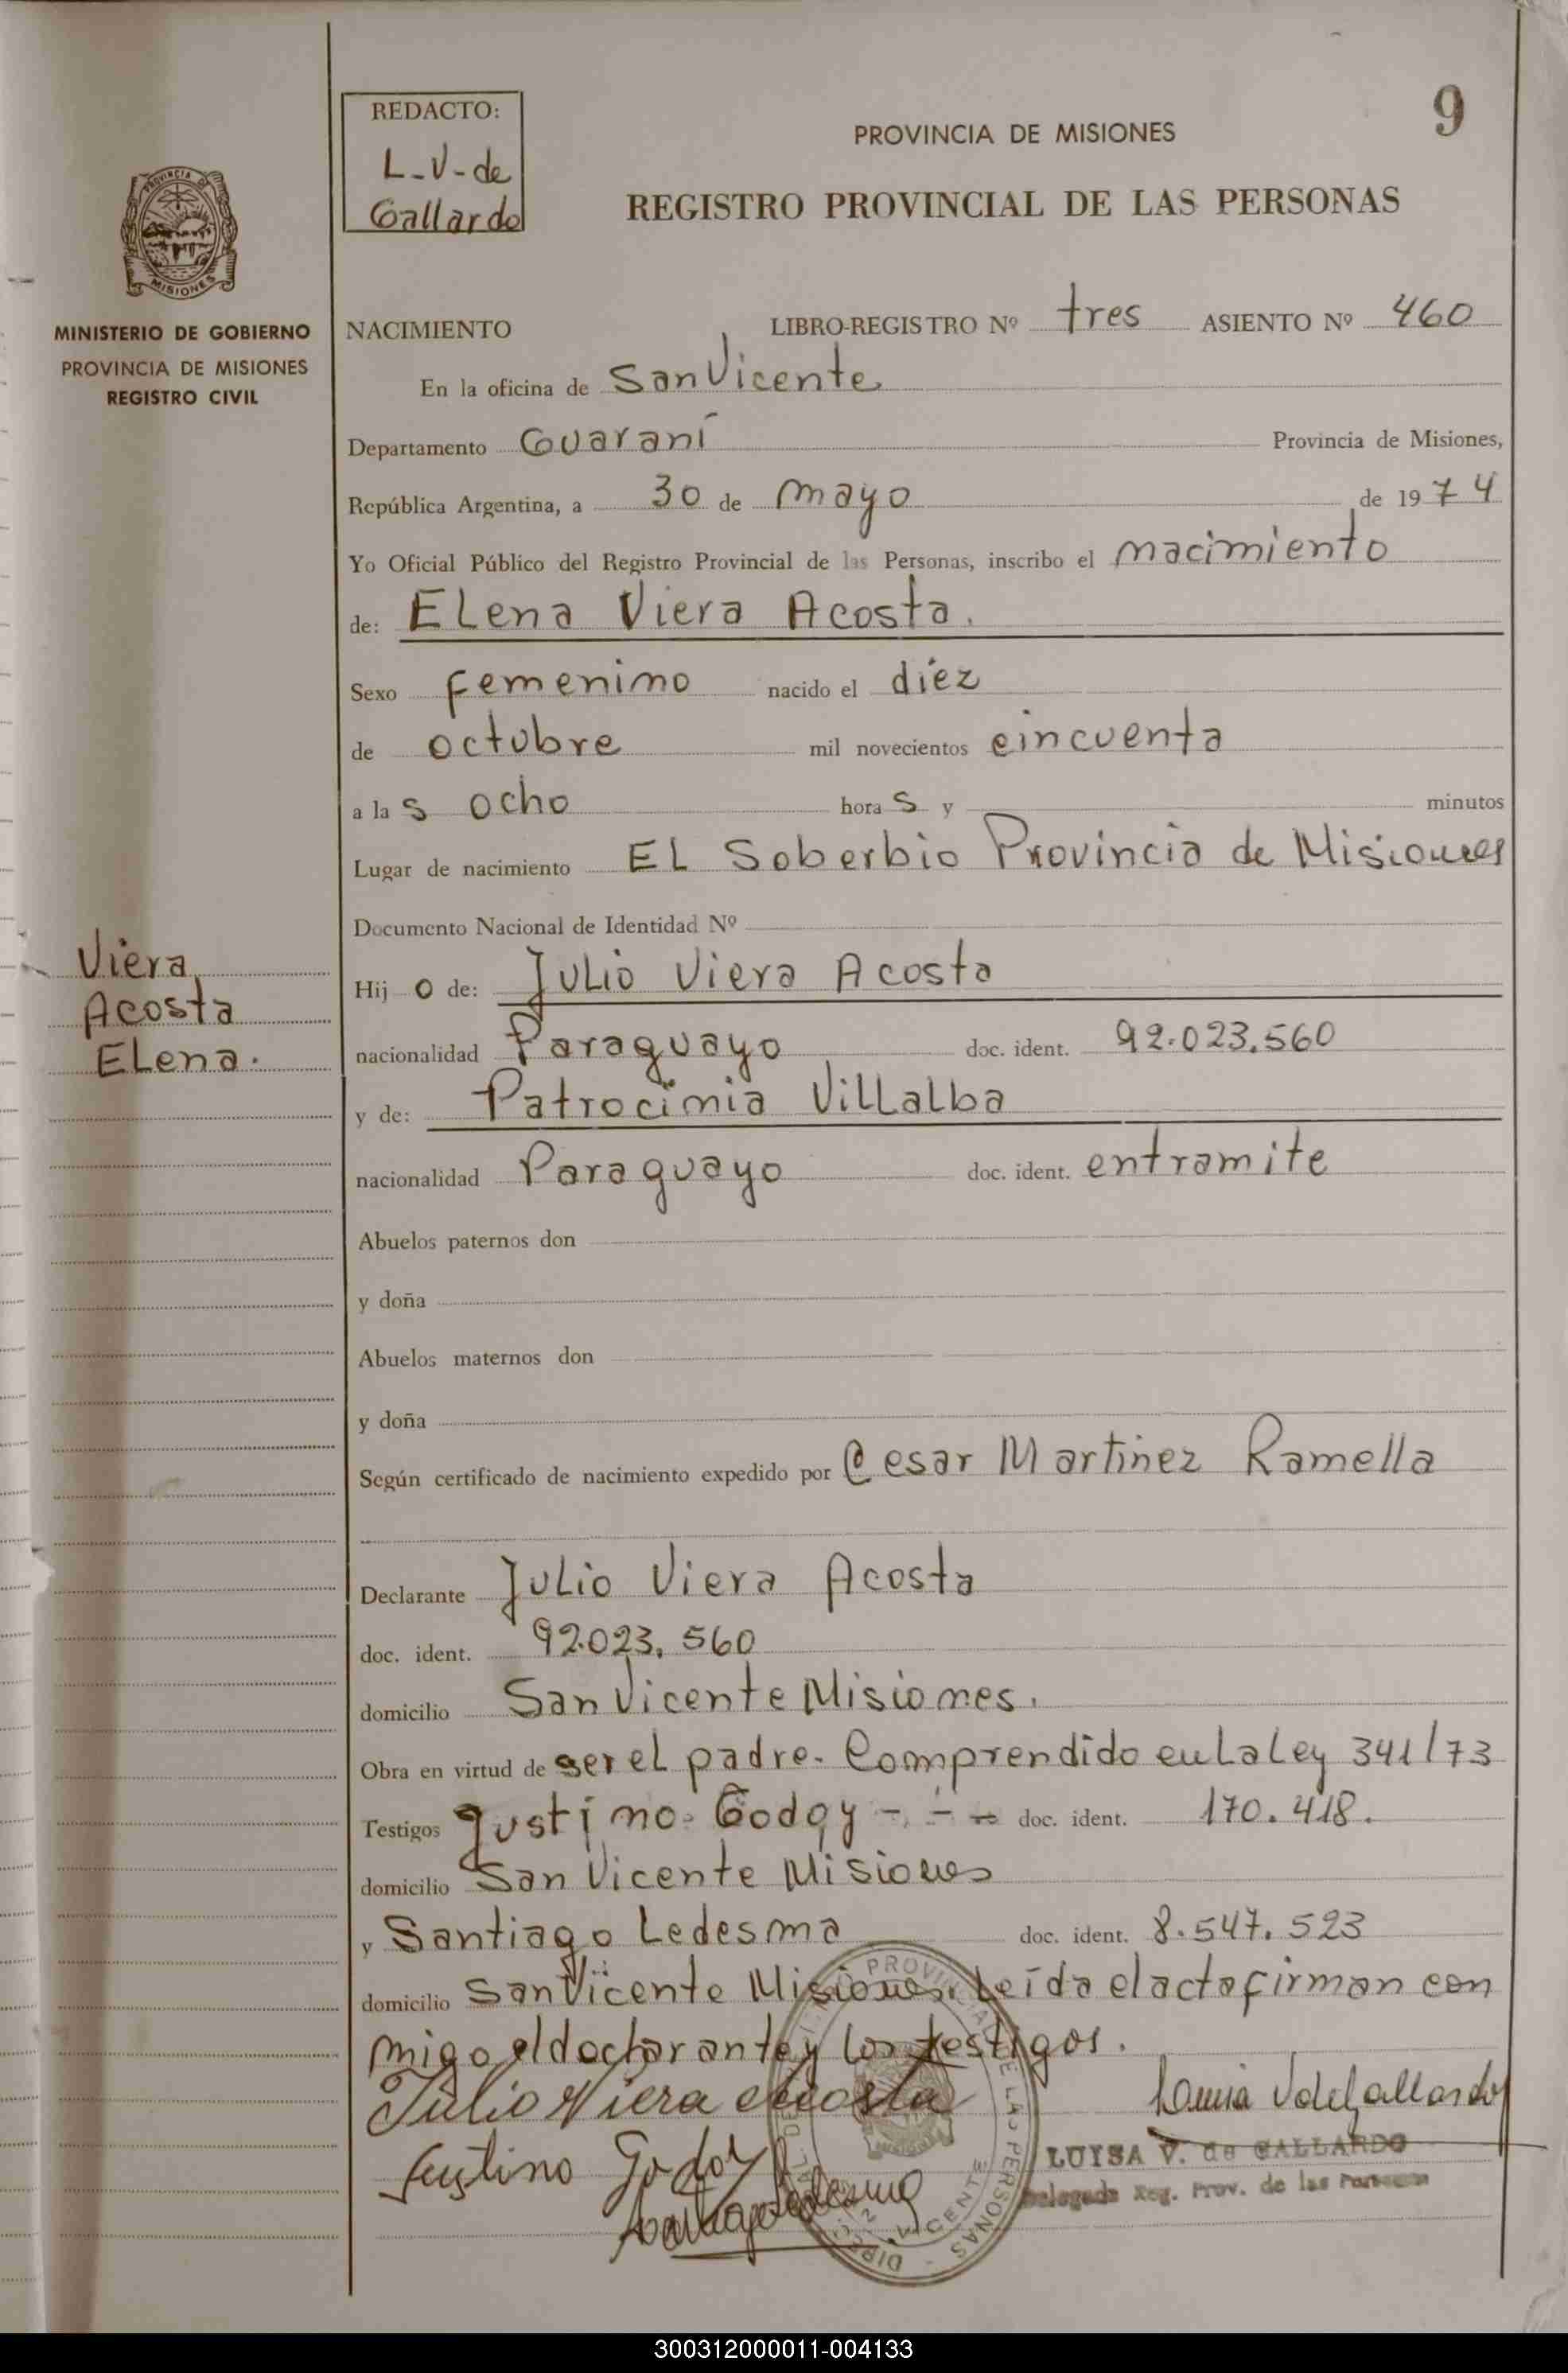 9
REDACTO:
L-V-de
Gallardo
PROVINCIA DE MISIONES
REGISTRO PROVINCIAL DE LAS PERSONAS
PROVINCIA DE
MISIONES
MINISTERIO DE GOBIERNO
PROVINCIA DE MISIONES
REGISTRO CIVIL
NACIMIENTO LIBRO-REGISTRO Nº tres ASIENTO Nº 460
En la oficina de San Vicente
Departamento Guaraní Provincia de Misiones,
República Argentina, a 30 de mayo de 1974
Yo Oficial Público del Registro Provincial de las Personas, inscribo el nacimiento
de: Elena Viera Acosta.
Sexo femenino nacido el diez
de octubre mil novecientos cincuenta
a la s ocho hora s y minutos
Lugar de nacimiento El Soberbio Provincia de Misiones
Documento Nacional de Identidad Nº
Viera
Acosta
Elena.
Hij o de: Julio Viera Acosta
nacionalidad Paraguayo doc. ident. 92.023.560
y de: Patrocinia Villalba
nacionalidad Paraguayo doc. ident. entramite
Abuelos paternos don
y doña
Abuelos maternos don
y doña
Según certificado de nacimiento expedido por Cesar Martinez Ramella
Declarante Julio Viera Acosta
doc. ident. 92.023.560
domicilio San Vicente Misiones.
Obra en virtud de ser el padre. Comprendido en La Ley 341/73
Testigos Justino Godoy doc. ident. 170.418.
domicilio San Vicente Misiones
y Santiago Ledesma doc. ident. 8.547.523
domicilio San Vicente Misiones. Leída el acta firman con
migo el declarante y los testigos.
Julio Viera Acosta
Justino Godoy
LUISA V. de GALLARDO
Delegada Reg. Prov. de las Personas
300312000011-004133